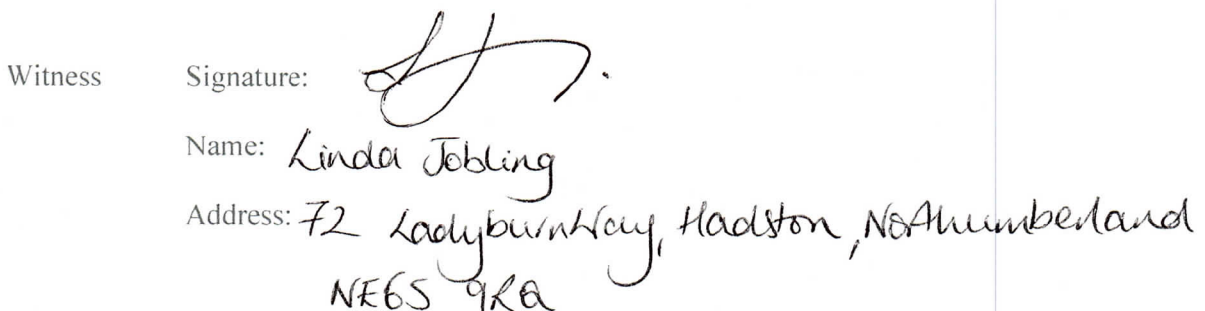 Witness Signature:
Name: Linda Jobling
Address: 72 Ladyburn Way, Hadston, Northumberland
NE65 9RG